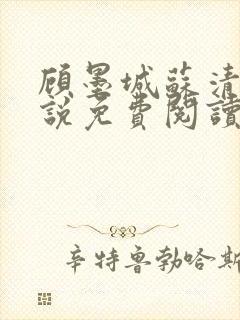 顾墨城蘇清
說免費閱讀
辛特鲁勃哈斯